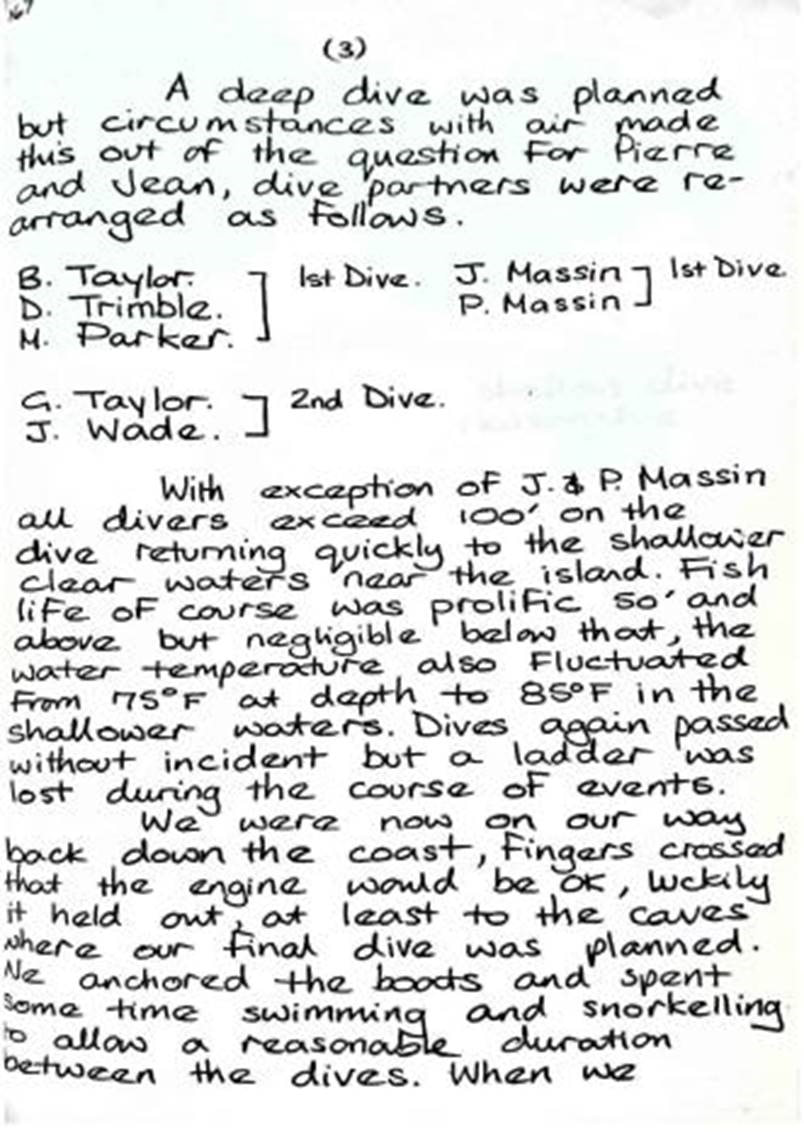 (3)
A deep dive was planned
but circumstances with air made
this out of the question for Pierre
and Jean, dive partners were re-
arranged as follows.
B. Taylor. ] 1st Dive. J. Massin ] 1st Dive.
D. Trimble. P. Massin
M. Parker.
G. Taylor. ] 2nd Dive.
J. Wade.
With exception of J. & P. Massin
all divers exceed 100' on the
dive returning quickly to the shallower
clear waters near the island. Fish
life of course was prolific 50' and
above but negligible below that, the
water temperature also fluctuated
from 75°F at depth to 85°F in the
shallower waters. Dives again passed
without incident but a ladder was
lost during the course of events.
We were now on our way
back down the coast, fingers crossed
that the engine would be OK, luckily
it held out, at least to the caves
where our final dive was planned.
We anchored the boats and spent
some time swimming and snorkelling
to allow a reasonable duration
between the dives. When we